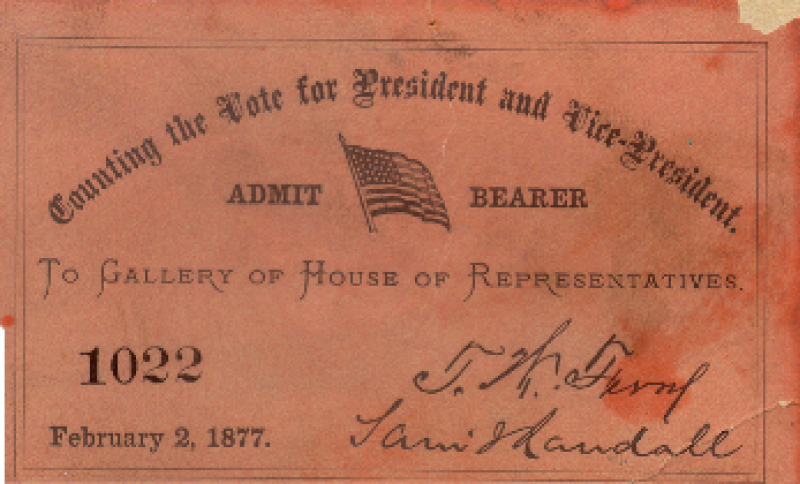 Counting the Vote for President and Vice-President.
ADMIT BEARER
TO GALLERY OF HOUSE OF REPRESENTATIVES.
1022
T. W. Ferry
February 2, 1877.
Saml J Randall